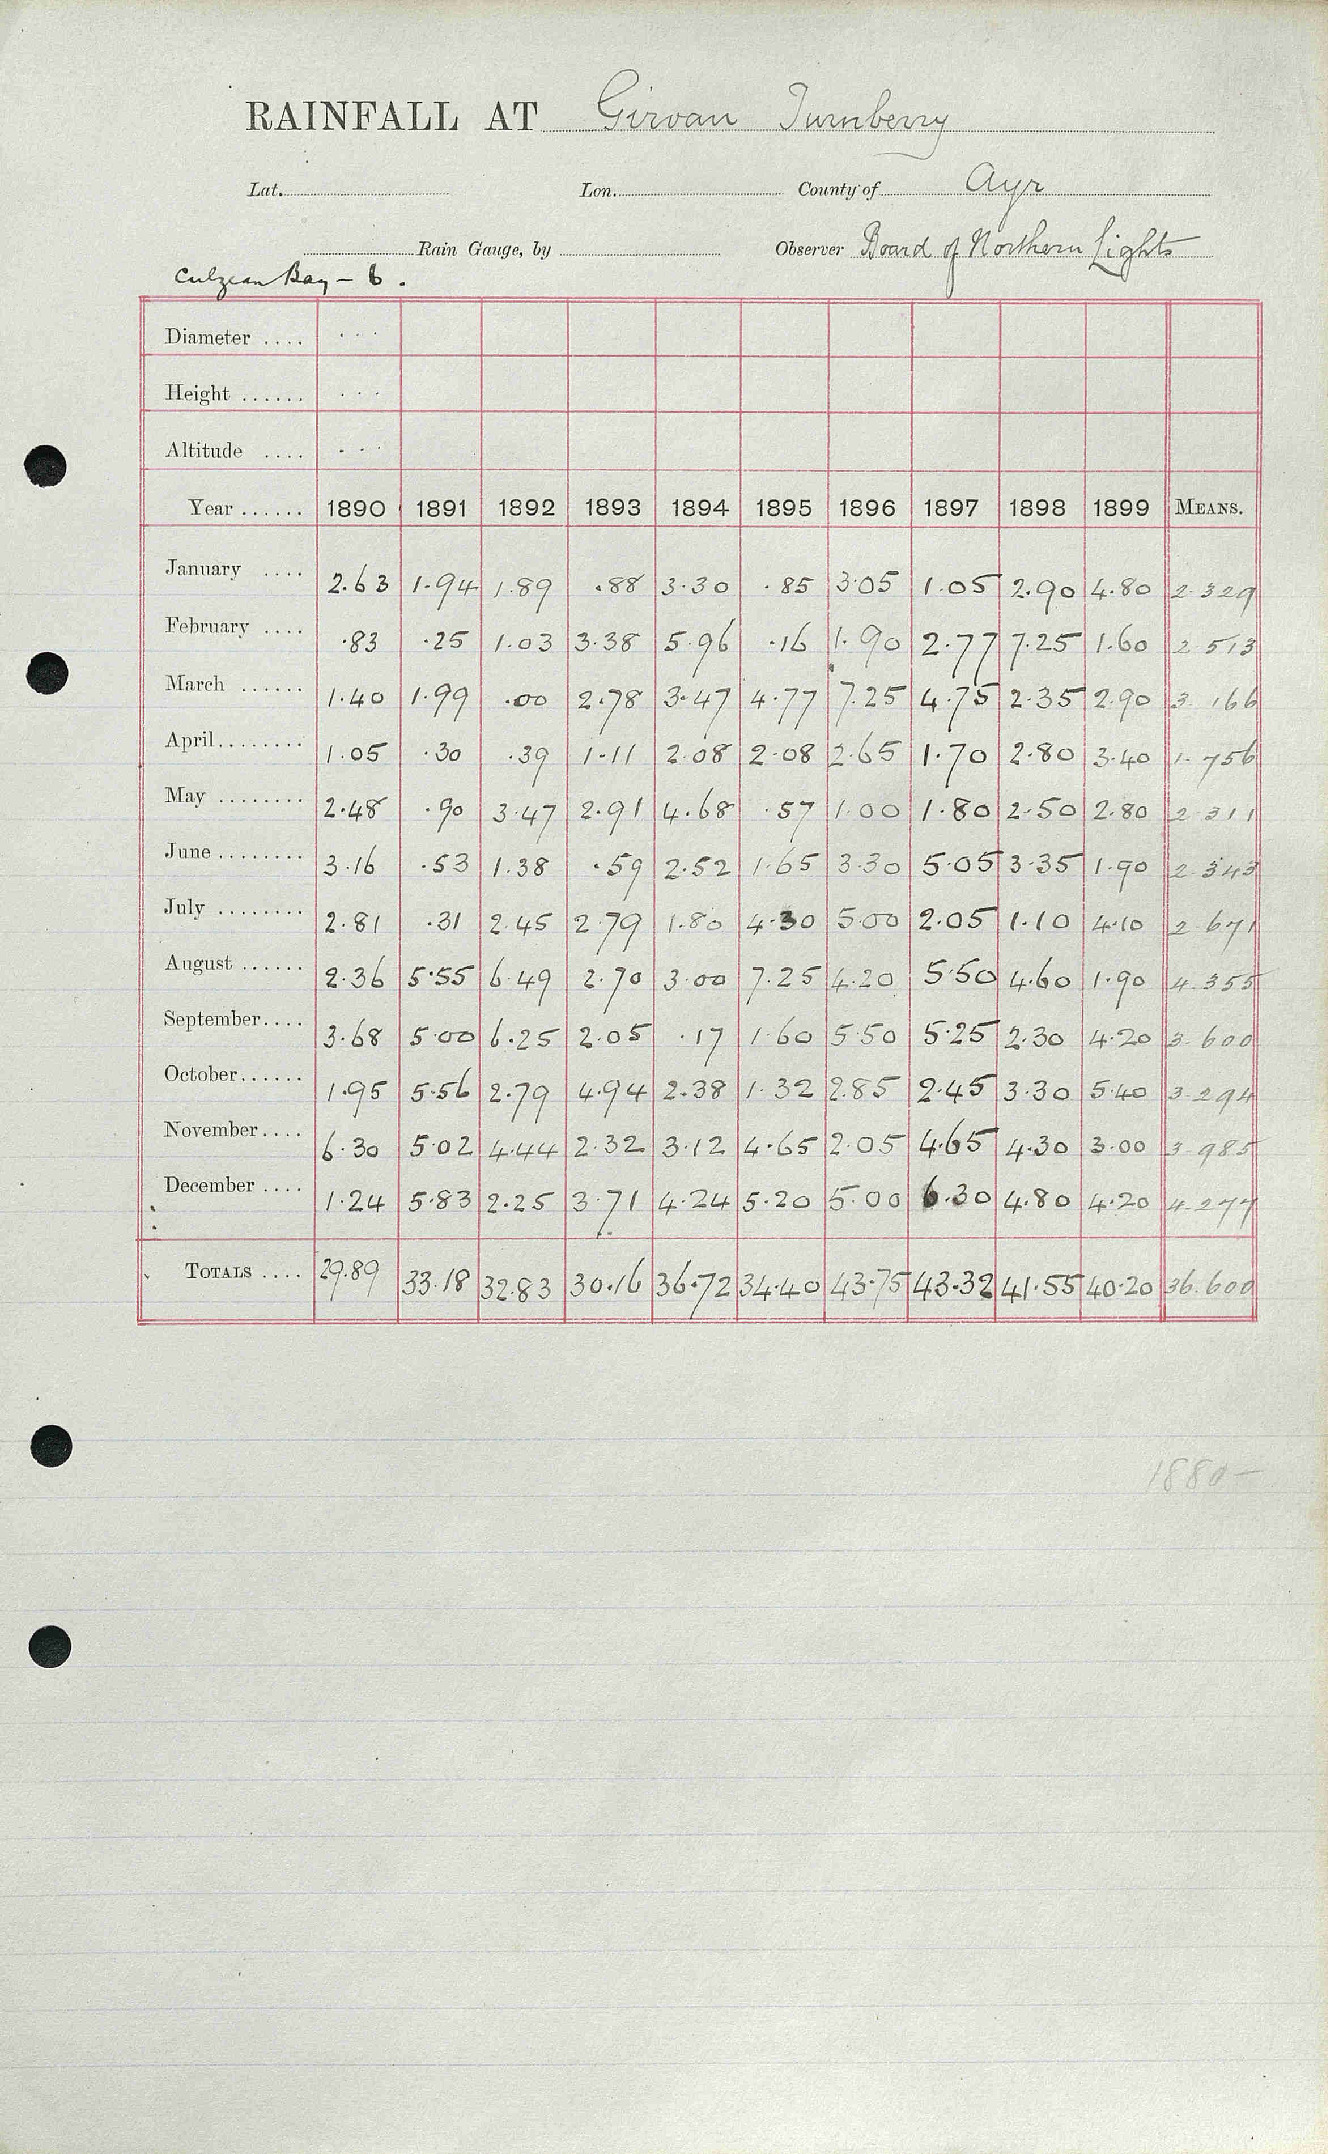 RAINFALL AT Girvan Turnberry
Lat. Lon. County of Ayr
Rain Gauge, by Observer Board of Northern Lights
Culzean Bay – 6.
Diameter .... ...
Height ...... ...
Altitude .... ...
Year ...... 1890 1891 1892 1893 1894 1895 1896 1897 1898 1899 MEANS.
January .... 2.63 1.94 1.89 .88 3.30 .85 3.05 1.05 2.90 4.80 2.329
February .... .83 .25 1.03 3.38 5.96 .16 1.90 2.77 7.25 1.60 2.513
March ...... 1.40 1.99 .00 2.78 3.47 4.77 7.25 4.75 2.35 2.90 3.166
April........ 1.05 .30 .39 1.11 2.08 2.08 2.65 1.70 2.80 3.40 1.756
May ........ 2.48 .90 3.47 2.91 4.68 .57 1.00 1.80 2.50 2.80 2.311
June ........ 3.16 .53 1.38 .59 2.52 1.65 3.30 5.05 3.35 1.90 2.343
July ........ 2.81 .31 2.45 2.79 1.80 4.30 5.00 2.05 1.10 4.10 2.671
August ...... 2.36 5.55 6.49 2.70 3.00 7.25 4.20 5.50 4.60 1.90 4.355
September.... 3.68 5.00 6.25 2.05 .17 1.60 5.50 5.25 2.30 4.20 3.600
October...... 1.95 5.56 2.79 4.94 2.38 1.32 2.85 2.45 3.30 5.40 3.294
November.... 6.30 5.02 4.44 2.32 3.12 4.65 2.05 4.65 4.30 3.00 3.985
December .... 1.24 5.83 2.25 3.71 4.24 5.20 5.00 6.30 4.80 4.20 4.277
TOTALS .... 29.89 33.18 32.83 30.16 36.72 34.40 43.75 43.32 41.55 40.20 36.600
1880–